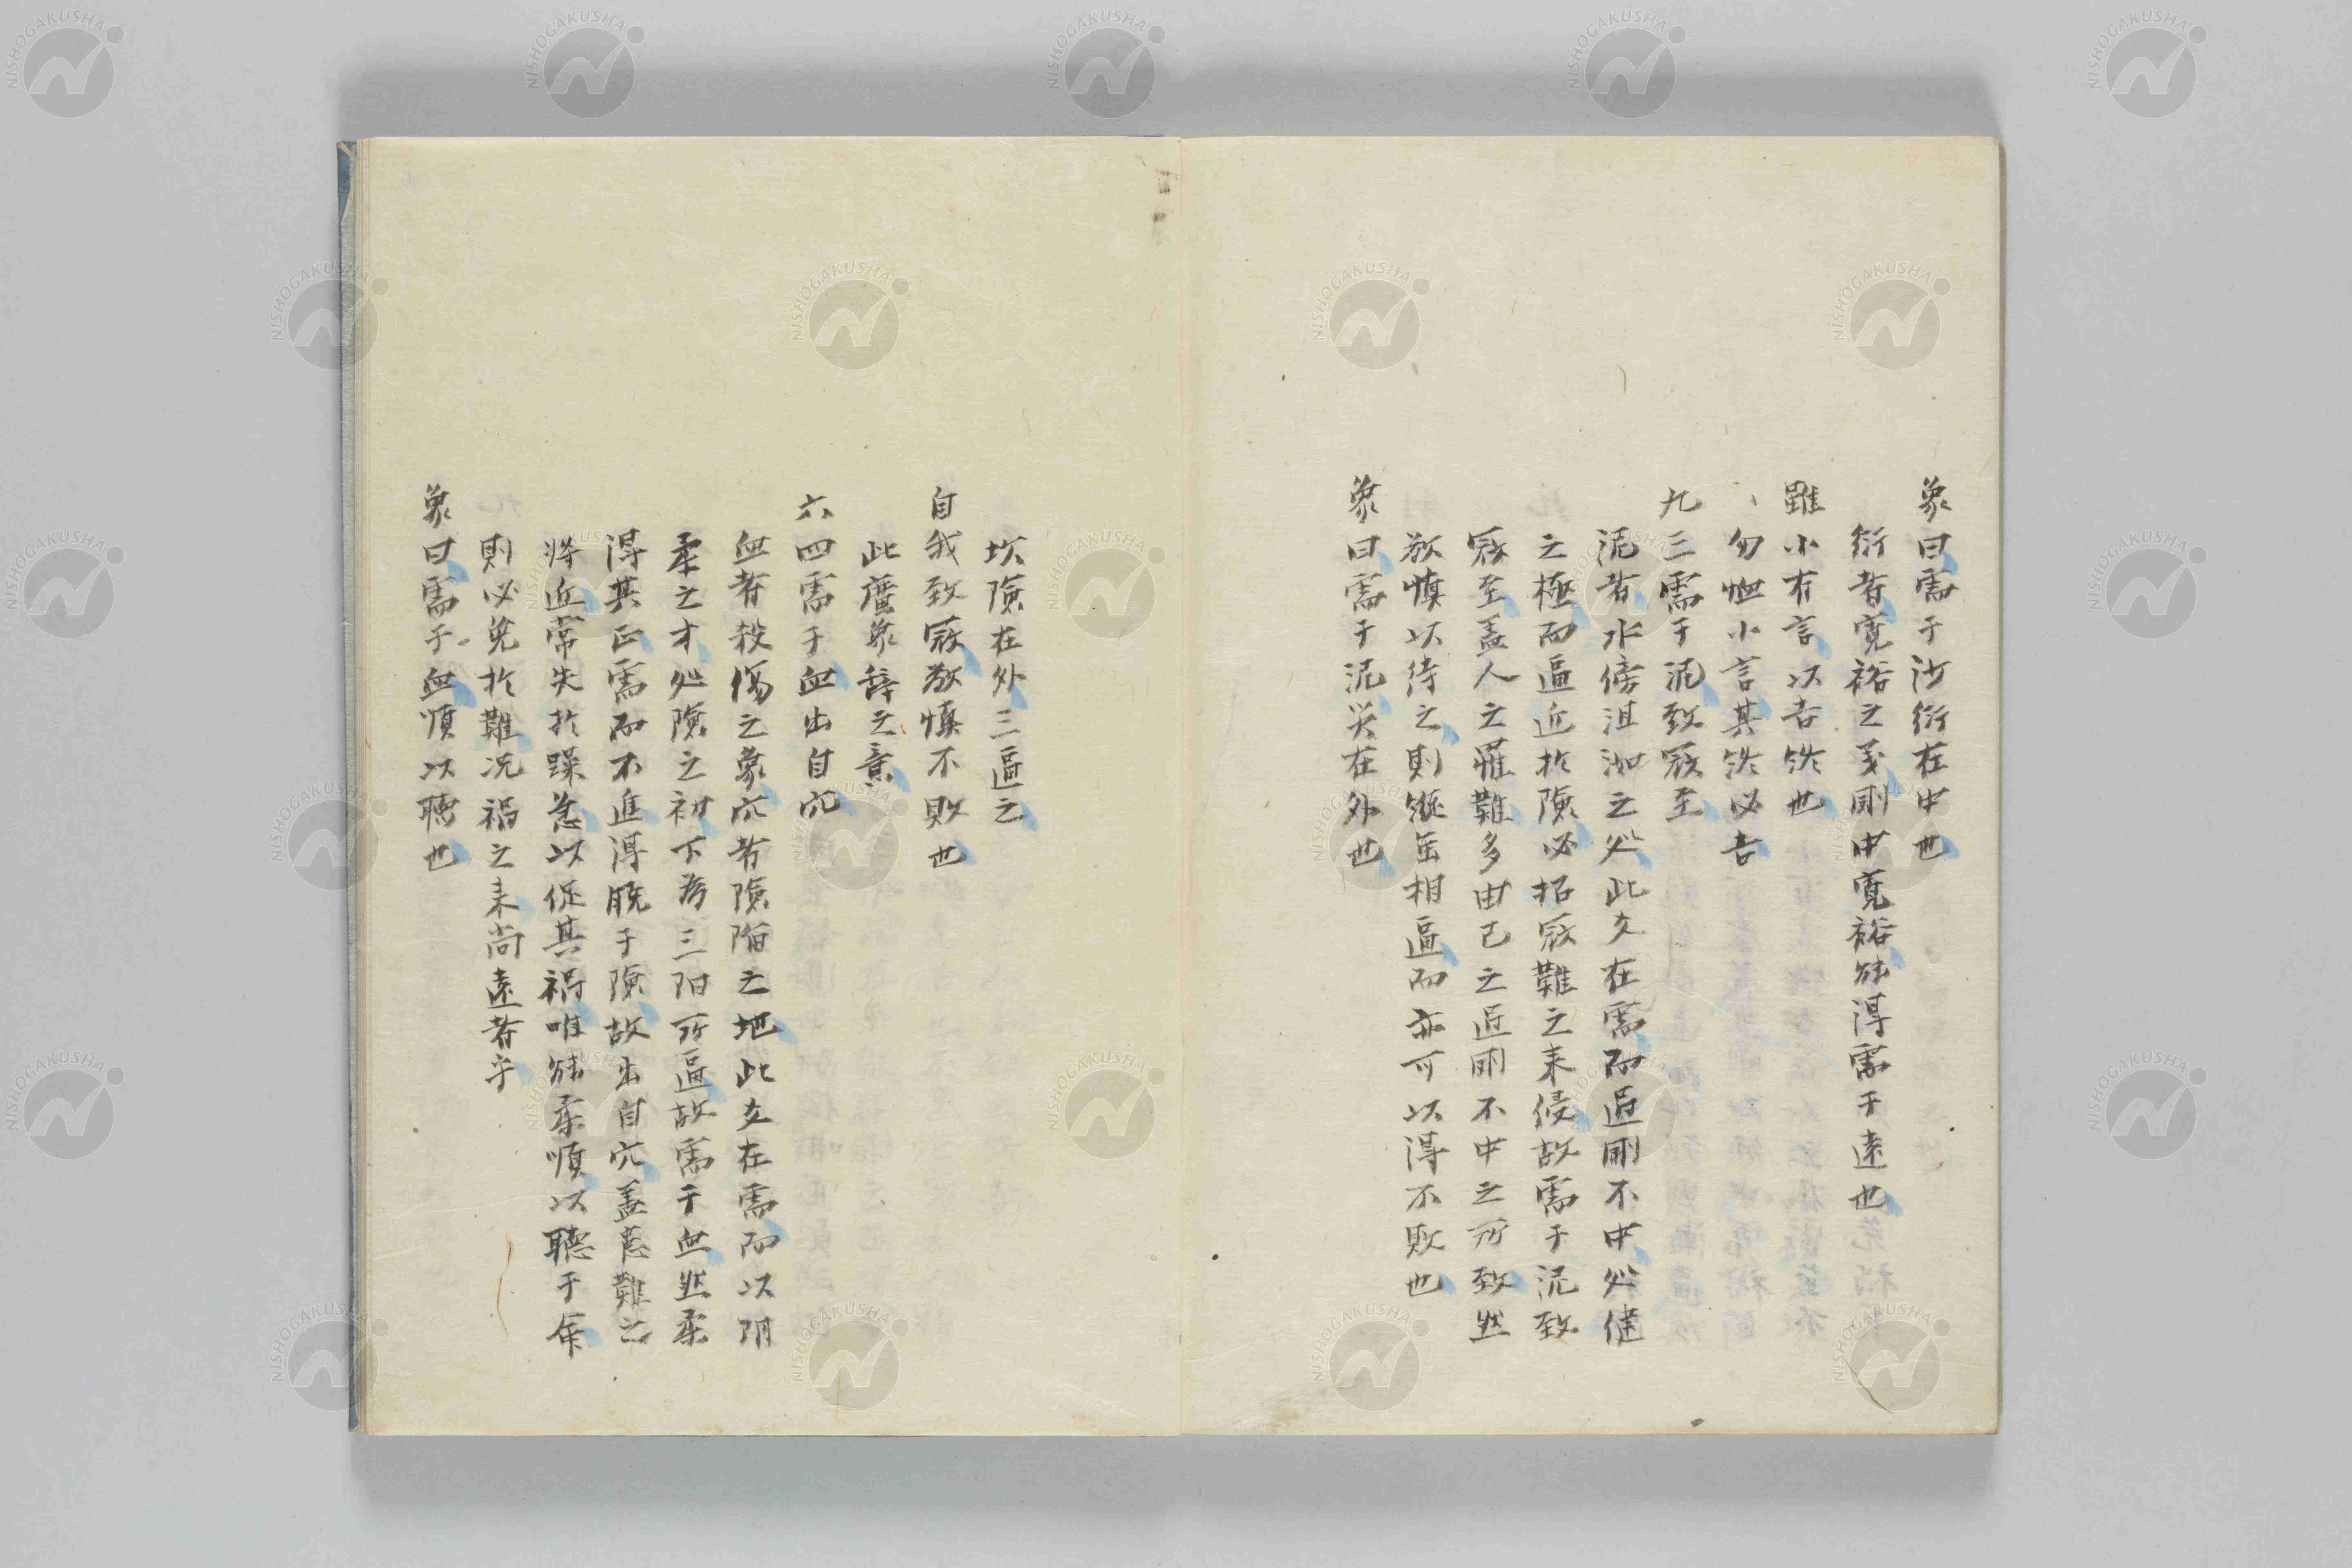 象曰需于沙衍在中也
衍者寛裕之義剛中寛裕能得需于遠也
雖小有言以吉終也
勿恤小言其終必吉
九三需于泥致寇至
泥者水傍沮洳之処此爻在需而近剛不中処健
之極而逼近於險必招寇難之来侵故需于泥致
寇至盖人之罹難多由己之近剛不中之所致然
敬慎以待之則縦函相逼而亦可以得不敗也
象曰需于泥災在外也
坎險在外三逼之
自我致寇敬慎不敗也
此廣象辞之意
六四需于血出自穴
血者殺傷之象穴者險陥之地此爻在需而以阴
柔之才処險之初下為三阳所逼故需于血然柔
得其正需而不進得脱于險故出自穴盖患難之
将近常失於躁急以促其禍唯能柔順以聴于命
則必免於難况禍之未尚遠者乎
象曰需于血順以聴也
NISHOGAKUSHA